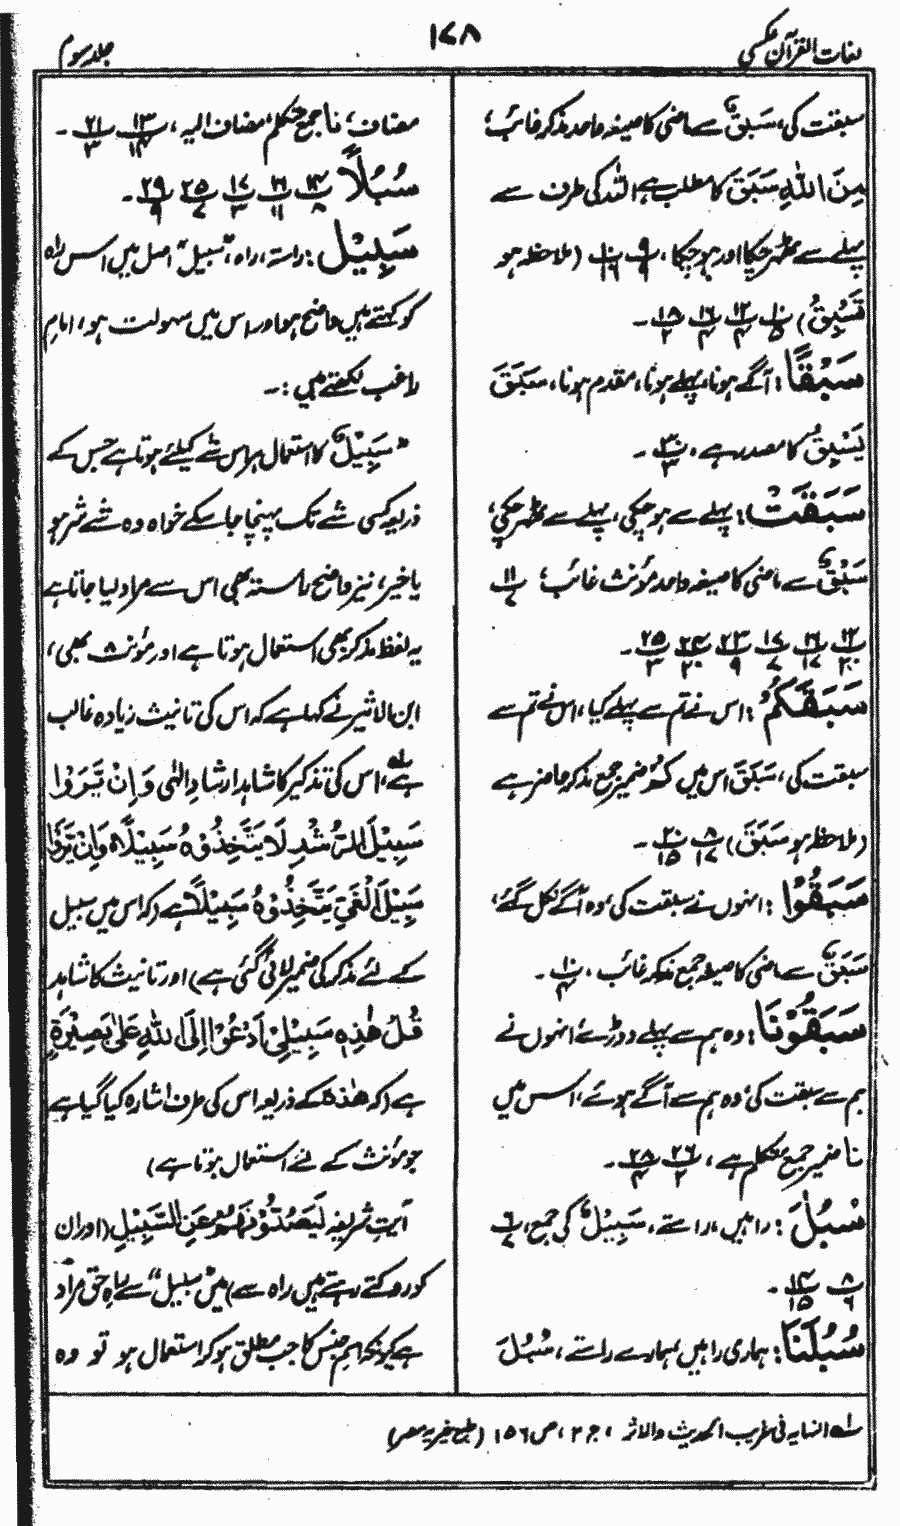 لغات القرآن عکسی
۱۷۸
جلد سوم
سبقت کی، سَبْقٌ سے ماضی کا صیغہ واحد مذکر غائب،
مِنَ اللّٰهِ سَبَقَ کا مطلب ہے اللہ کی طرف سے
پہلے سے ٹھہر چکا اور ہو چکا، (ملاحظہ ہو
تَسْبِقُ)
سَبْقًا: آگے ہونا، پہلے ہونا، مقدم ہونا، سَبَقَ
یَسْبِقُ کا مصدر ہے،
سَبَقَتْ: پہلے سے ہو چکی، پہلے سے ٹھہر چکی،
سَبْقٌ سے ماضی کا صیغہ واحد مؤنث غائب، ۱۱/۷
سَبَقَکُمْ: اس نے تم سے پہلے کیا، اس نے تم سے
سبقت کی، سَبَقَ اس میں کُمْ ضمیر جمع مذکر حاضر ہے
(ملاحظہ ہو سَبَقَ)
سَبَقُوْا: انہوں نے سبقت کی، وہ آگے نکل گئے،
سَبْقٌ سے ماضی کا صیغہ جمع مذکر غائب،
سَبَقُوْنَا: وہ ہم سے پہلے دوڑے، انہوں نے
ہم سے سبقت کی، وہ ہم سے آگے ہوئے، اس میں
نا ضمیر جمع متکلم ہے، ۲۶/۲ ۲۸/۴
سُبُلَ: راہیں، راستے، سَبِیْلٌ کی جمع، ۶/۷
۸/۶ ۱۴/۱۵
سُبُلَنَا: ہماری راہیں، ہمارے راستے، سُبُلَ
مضاف، نا جمع متکلم، مضاف الیہ، ۱۳/۱۴ ۲۱/۳
سُبُلًا
سَبِیْل: راستہ، راہ، "سبیل" اصل میں اس راہ
کو کہتے ہیں جو واضح ہو اور اس میں سہولت ہو، امام
راغب لکھتے ہیں:
سَبِیْلٌ کا استعمال ہر اس شے کیلئے ہوتا ہے جس کے
ذریعہ کسی شے تک پہنچا جا سکے خواہ وہ شے شر ہو
یا خیر، نیز واضح راستہ بھی اس سے مراد لیا جاتا ہے
یہ لفظ مذکر بھی استعمال ہوتا ہے اور مؤنث بھی،
ابن الاثیر نے کہا ہے کہ اس کی تانیث زیادہ غالب
ہے، اس کی تذکیر کا شاہد ارشادِ الٰہی وَاِنْ یَّرَوْا
سَبِیْلَ الرُّشْدِ لَا یَتَّخِذُوْہُ سَبِیْلًا وَاِنْ یَّرَوْا
سَبِیْلَ الْغَیِّ یَتَّخِذُوْہُ سَبِیْلًا ہے (کہ اس میں سبیل
کے لئے مذکر کی ضمیر لائی گئی ہے) اور تانیث کا شاہد
قُلْ هٰذِهٖ سَبِیْلِیْ اَدْعُوْا اِلَی اللّٰهِ عَلٰی بَصِیْرَةٍ
ہے (کہ هٰذِهٖ کے ذریعہ اس کی طرف اشارہ کیا گیا ہے
جو مؤنث کے لئے استعمال ہوتا ہے)
آیتِ شریفہ لَیَصُدُّوْنَهُمْ عَنِ السَّبِیْلِ (اور ان
کو روکتے رہتے ہیں راہ سے) میں "سبیل" سے راہِ حق مراد
ہے کیونکہ اسمِ جنس کا جب مطلق ہو کر استعمال ہو تو وہ
۱؎ النہایہ فی غریب الحدیث والاثر، ج ۲، ص ۱۵۶ (طبع خیریہ مصر)